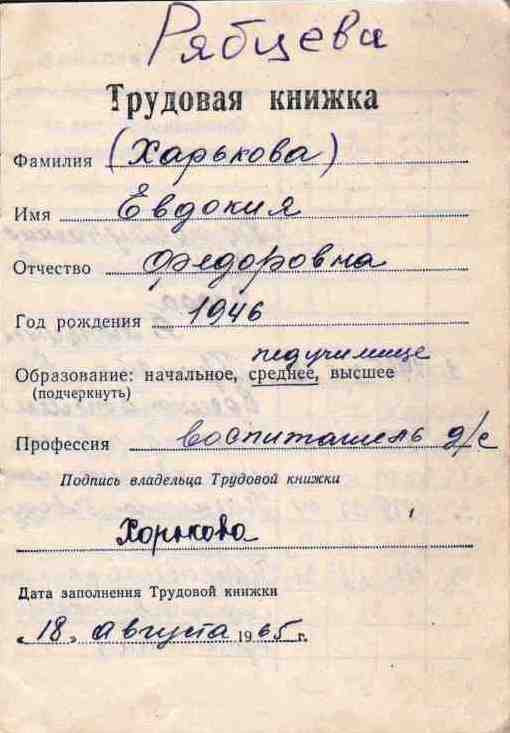 Рябцева
Трудовая книжка
Фамилия (Харькова)
Имя Евдокия
Отчество Федоровна
Год рождения 1946
педучилище
Образование: начальное, среднее, высшее
(подчеркнуть)
Профессия воспитатель д/с
Подпись владельца Трудовой книжки
Харькова
Дата заполнения Трудовой книжки
„18" августа 1965 г.